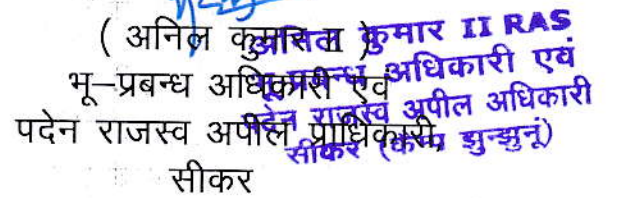 ( अनिल कुमार II )
भू–प्रबन्ध अधिकारी एवं
पदेन राजस्व अपील प्राधिकारी,
सीकर
अनिल कुमार II RAS
भू प्रबन्ध अधिकारी एवं
पदेन राजस्व अपील अधिकारी
सीकर (कैम्प झुन्झुनूं)